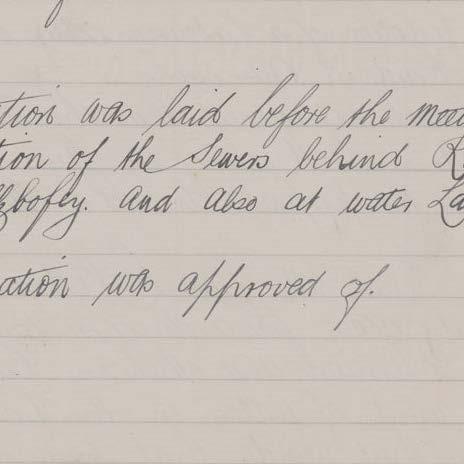 ation was laid before the meet
tion of the Sewers behind R
bofey. And also at water La
ation was approved of.